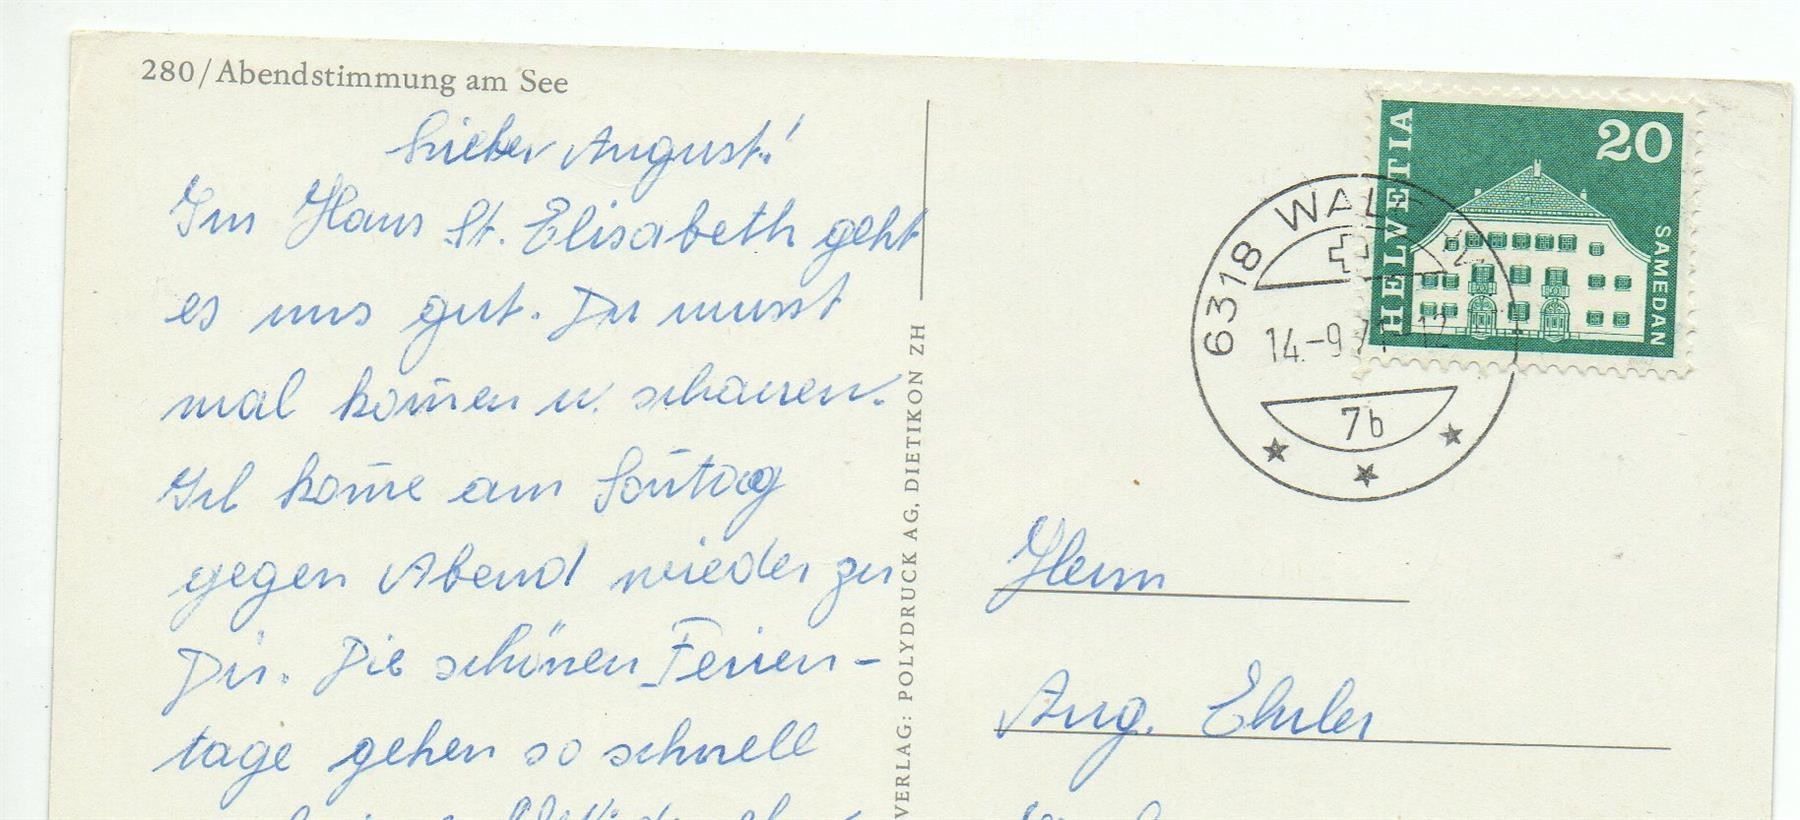 280/Abendstimmung am See
Lieber August!
Im Haus St. Elisabeth geht
es uns gut. Du musst
mal kom̄en u. schauen.
Ich kom̄e am Son̄tag
gegen Abend wieder zu
Dir. Die schönen Ferien-
tage gehen so schnell
VERLAG: POLYDRUCK AG, DIETIKON ZH
HELVETIA
20
SAMEDAN
6318
14.-9.7
12
7b
Herrn
Aug. Ehrler